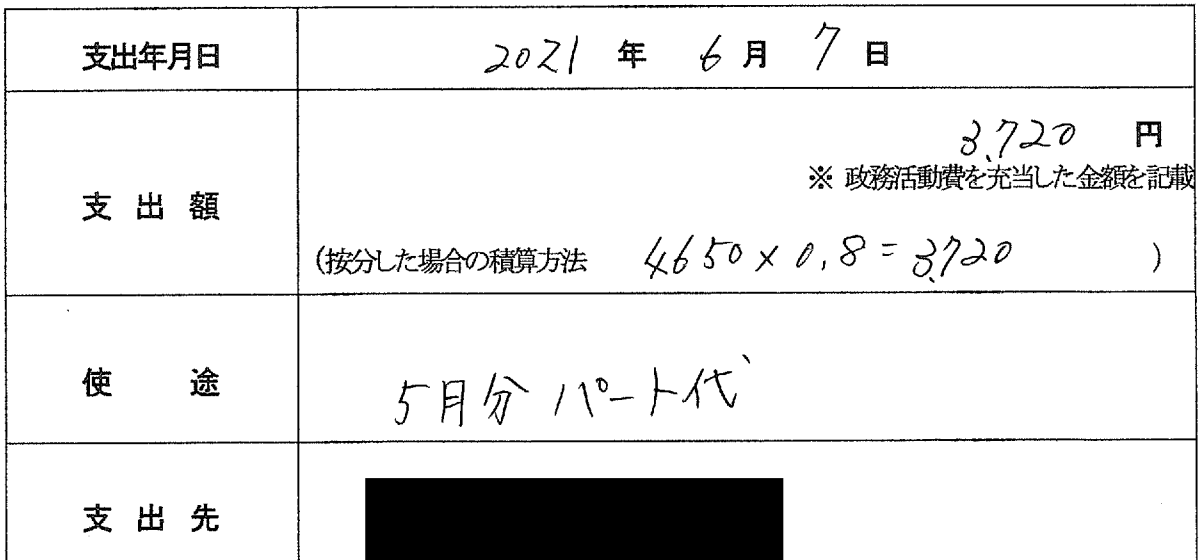 支出年月日 2021 年 6 月 7 日
3,720 円
※ 政務活動費を充当した金額を記載
支出額
(按分した場合の積算方法 4650×0.8=3,720 )
使途 5月分 パート代
支出先